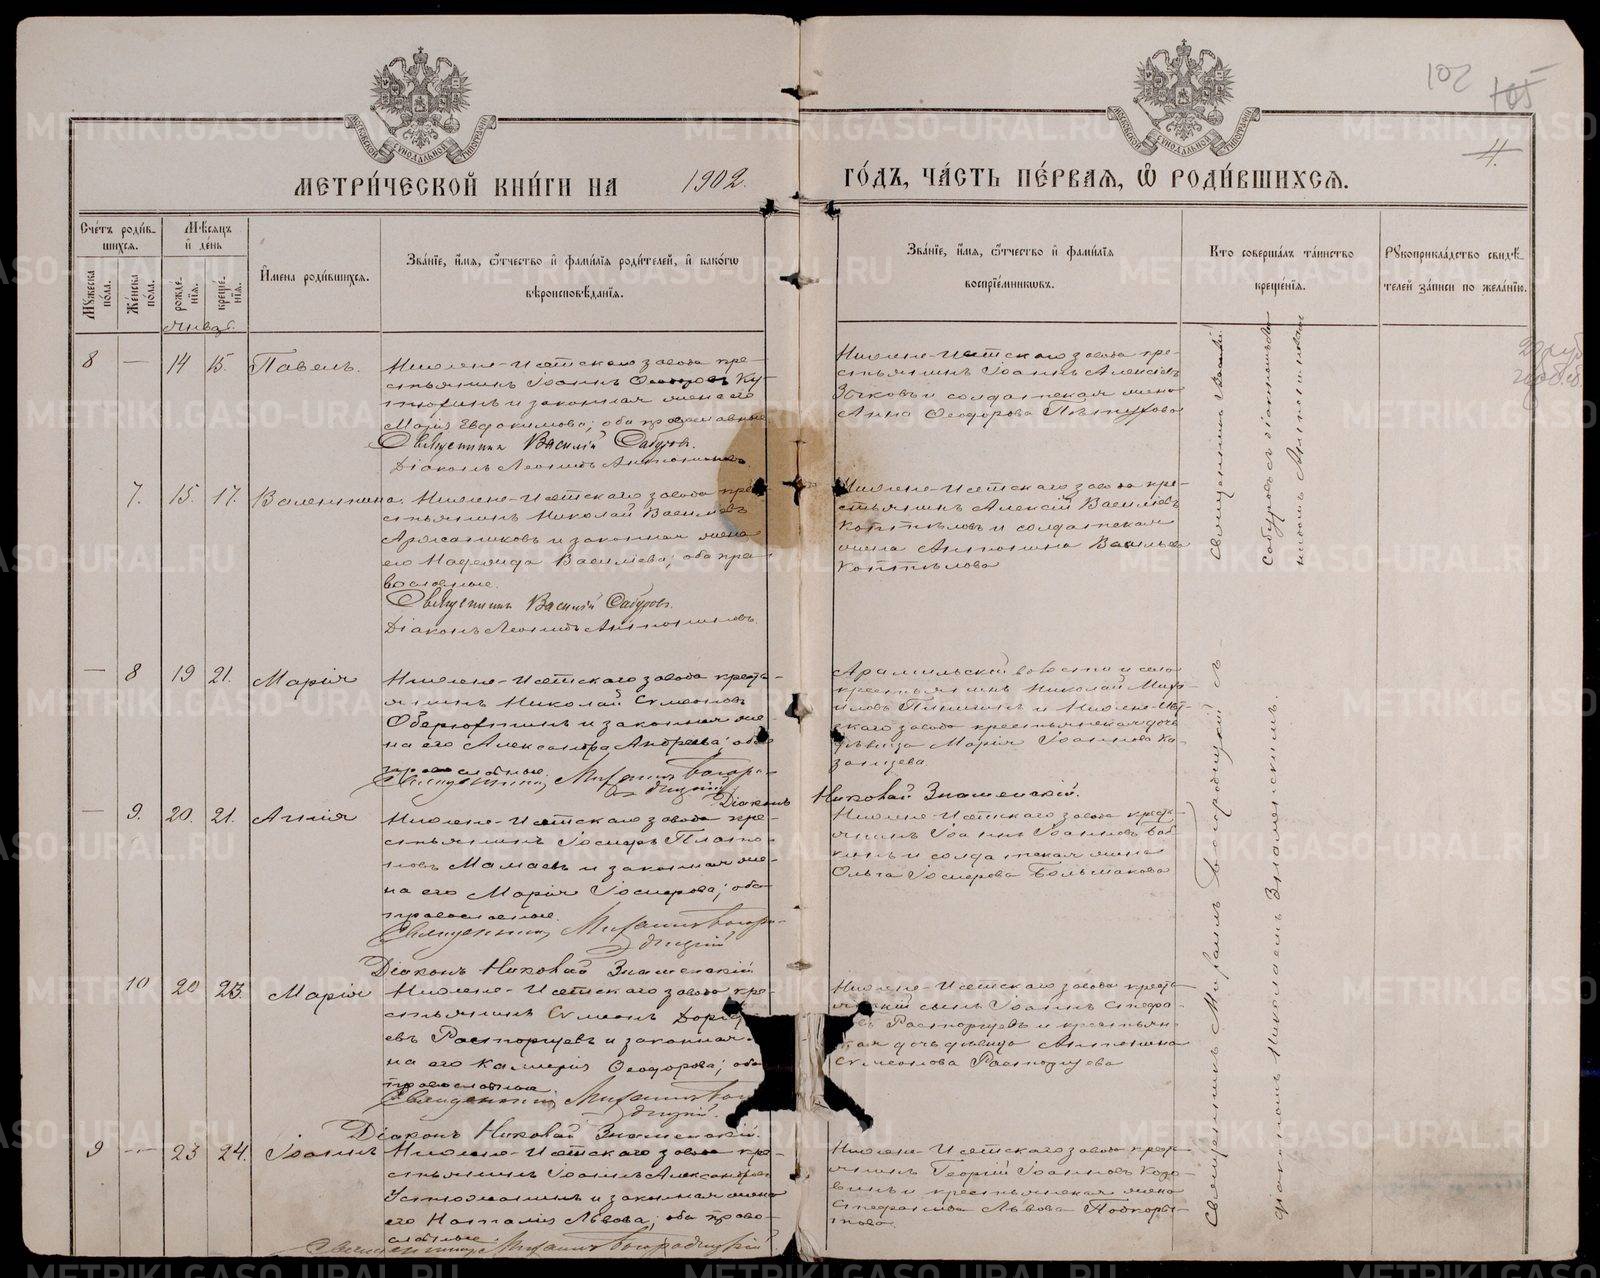 102 105
4.
МОСКОВСКОЙ СУНОДАЛЬНОЙ ТИПОГРАФІИ
МОСКОВСКОЙ СУНОДАЛЬНОЙ ТИПОГРАФІИ
МЕТРИ́ЧЕСКОЙ КНИ́ГИ НА 1902. ГО́ДЪ, ЧА́СТЬ ПЕ́РВАЯ, Ѡ РОДИ́ВШИХСЯ.
Сче́тъ роди́в-
шихся.
Мꙋ́жеска по́ла.
Же́нска по́ла.
Мѣ́сяцъ
и҆ де́нь
рожде́-нїя.
креще́-нїя.
И҆мена̀ роди́вшихся.
Зва́нїе, и҆́мя, ѻ҆́тчество и҆ фами́лїя роди́телей, и҆ како́гѡ
вѣроисповѣ́данїя.
Зва́нїе, и҆́мя, ѻ҆́тчество и҆ фами́лїя
воспрїе́мникωвъ.
Кто̀ соверша́лъ та́инство
креще́нїя.
Рꙋкоприкла́дство свидѣ́-
телей за́писи по жела́нїю.
8 — 14 15. Павелъ.
Нижне-Исетскаго завода кре-
стьянинъ Іоаннъ Ѳеодоровъ Ку-
тюхинъ и законная жена его
Марія Евдокимова; оба православные
Священникъ Василій Сабуровъ.
Діаконъ Леонидъ Антониновъ.
Нижне-Исетскаго завода кре-
стьянинъ Іоаннъ Алексѣевъ
и солдатская жена
Анна Ѳеодорова Пѣтухова
7. 15. 17. Валентина.
Нижне-Исетскаго завода кре-
стьянинъ Николай Васильевъ
и законная жена
его Надежда Васильева; оба пра-
вославные.
Священникъ Василій Сабуровъ.
Діаконъ Леонидъ Антониновъ.
Нижне-Исетскаго завода кре-
стьянинъ Алексій Васильевъ
Коптѣловъ и солдатская
жена Антонина Васильева
Коптѣлова
Священникъ Василій
Сабуровъ съ діакономъ Лео-
нидомъ Антониновымъ
— 8 19 21. Марія
Нижне-Исетскаго завода кресть-
янинъ Николай Сѵмеоновъ
Оберюхтинъ и законная же-
на его Александра Андреева; оба
православные.
Священникъ Михаилъ Богоро-
дицкій
Діаконъ Николай Знаменскій.
Арамильской волости и села
крестьянинъ Николай Миха-
иловъ и Нижне-Исет-
скаго завода крестьянская дочь
дѣвица Марія Іоаннова Ка-
занцева.
— 9. 20. 21. Анна
Нижне-Исетскаго завода кре-
стьянинъ Іосифъ Плато-
новъ Мамаевъ и законная же-
на его Марія Іосифова; оба
православные.
Священникъ Михаилъ Богоро-
дицкій
Діаконъ Николай Знаменскій
Нижне-Исетскаго завода кресть-
янинъ Іоаннъ Іоанновъ Баб-
кинъ и солдатская жена
Ольга Іосифова Большакова
10 20 23. Марія
Нижне-Исетскаго завода кре-
стьянинъ Сѵмеонъ
Расторгуевъ и законная
на его Ѳеодорова; оба
православные.
Священникъ Михаилъ Бого
дицкій.
Діаконъ Николай Знаменскій.
Нижне-Исетскаго завода кресть-
янскій сынъ Іоаннъ Стефа-
новъ Расторгуевъ и крестьян-
ская дочь дѣвица Антонина
Сѵмеонова Расторгуева
9 — 23 24. Іоаннъ
Нижне-Исетскаго завода кре-
стьянинъ Іоаннъ Александровъ
Устюжанинъ и законная жена
его Наталія Львова; оба право-
славные.
Священникъ Михаилъ Богородицкій
Нижне-Исетскаго завода кресть-
янинъ Георгій Іоанновъ
и крестьянская жена
Стефанида Львова Подкоры-
това.
Священникъ Михаилъ Богородицкій съ
діакономъ Николаемъ Знаменскимъ.